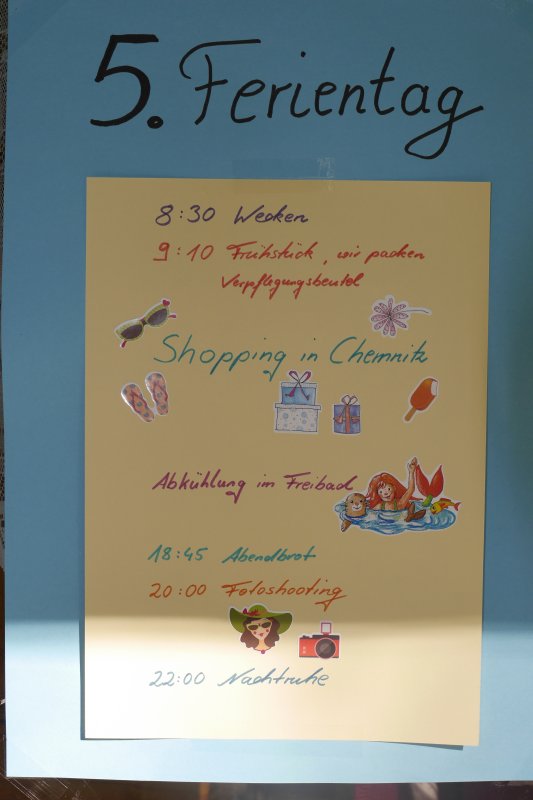 5. Ferientag
8:30 Wecken
9:10 Frühstück, wir packen
Verpflegungsbeutel
Shopping in Chemnitz
Abkühlung im Freibad
18:45 Abendbrot
20:00 Fotoshooting
22:00 Nachtruhe